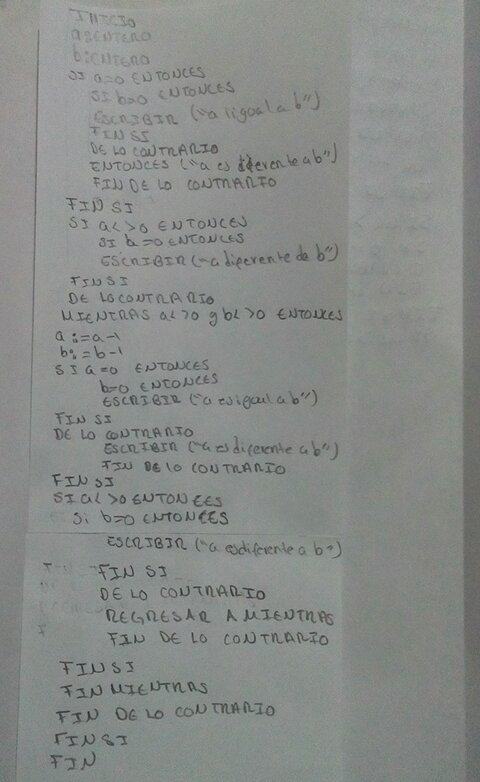 INICIO
a:ENTERO
b:ENTERO
SI a=0 ENTONCES
SI b=0 ENTONCES
ESCRIBIR ("a igual a b")
FIN SI
DE LO CONTRARIO
ENTONCES ("a es diferente a b")
FIN DE LO CONTRARIO
FIN SI
SI a<>0 ENTONCES
SI b=0 ENTONCES
ESCRIBIR ("a diferente de b")
FIN SI
DE LO CONTRARIO
MIENTRAS a<>0 y b<>0 ENTONCES
a:=a-1
b:=b-1
SI a=0 ENTONCES
b=0 ENTONCES
ESCRIBIR ("a es igual a b")
FIN SI
DE LO CONTRARIO
ESCRIBIR ("a es diferente a b")
FIN DE LO CONTRARIO
FIN SI
SI a<>0 ENTONCES
Si b=0 ENTONCES
ESCRIBIR ("a es diferente a b")
FIN SI
DE LO CONTRARIO
REGRESAR A MIENTRAS
FIN DE LO CONTRARIO
FIN SI
FIN MIENTRAS
FIN DE LO CONTRARIO
FIN SI
FIN